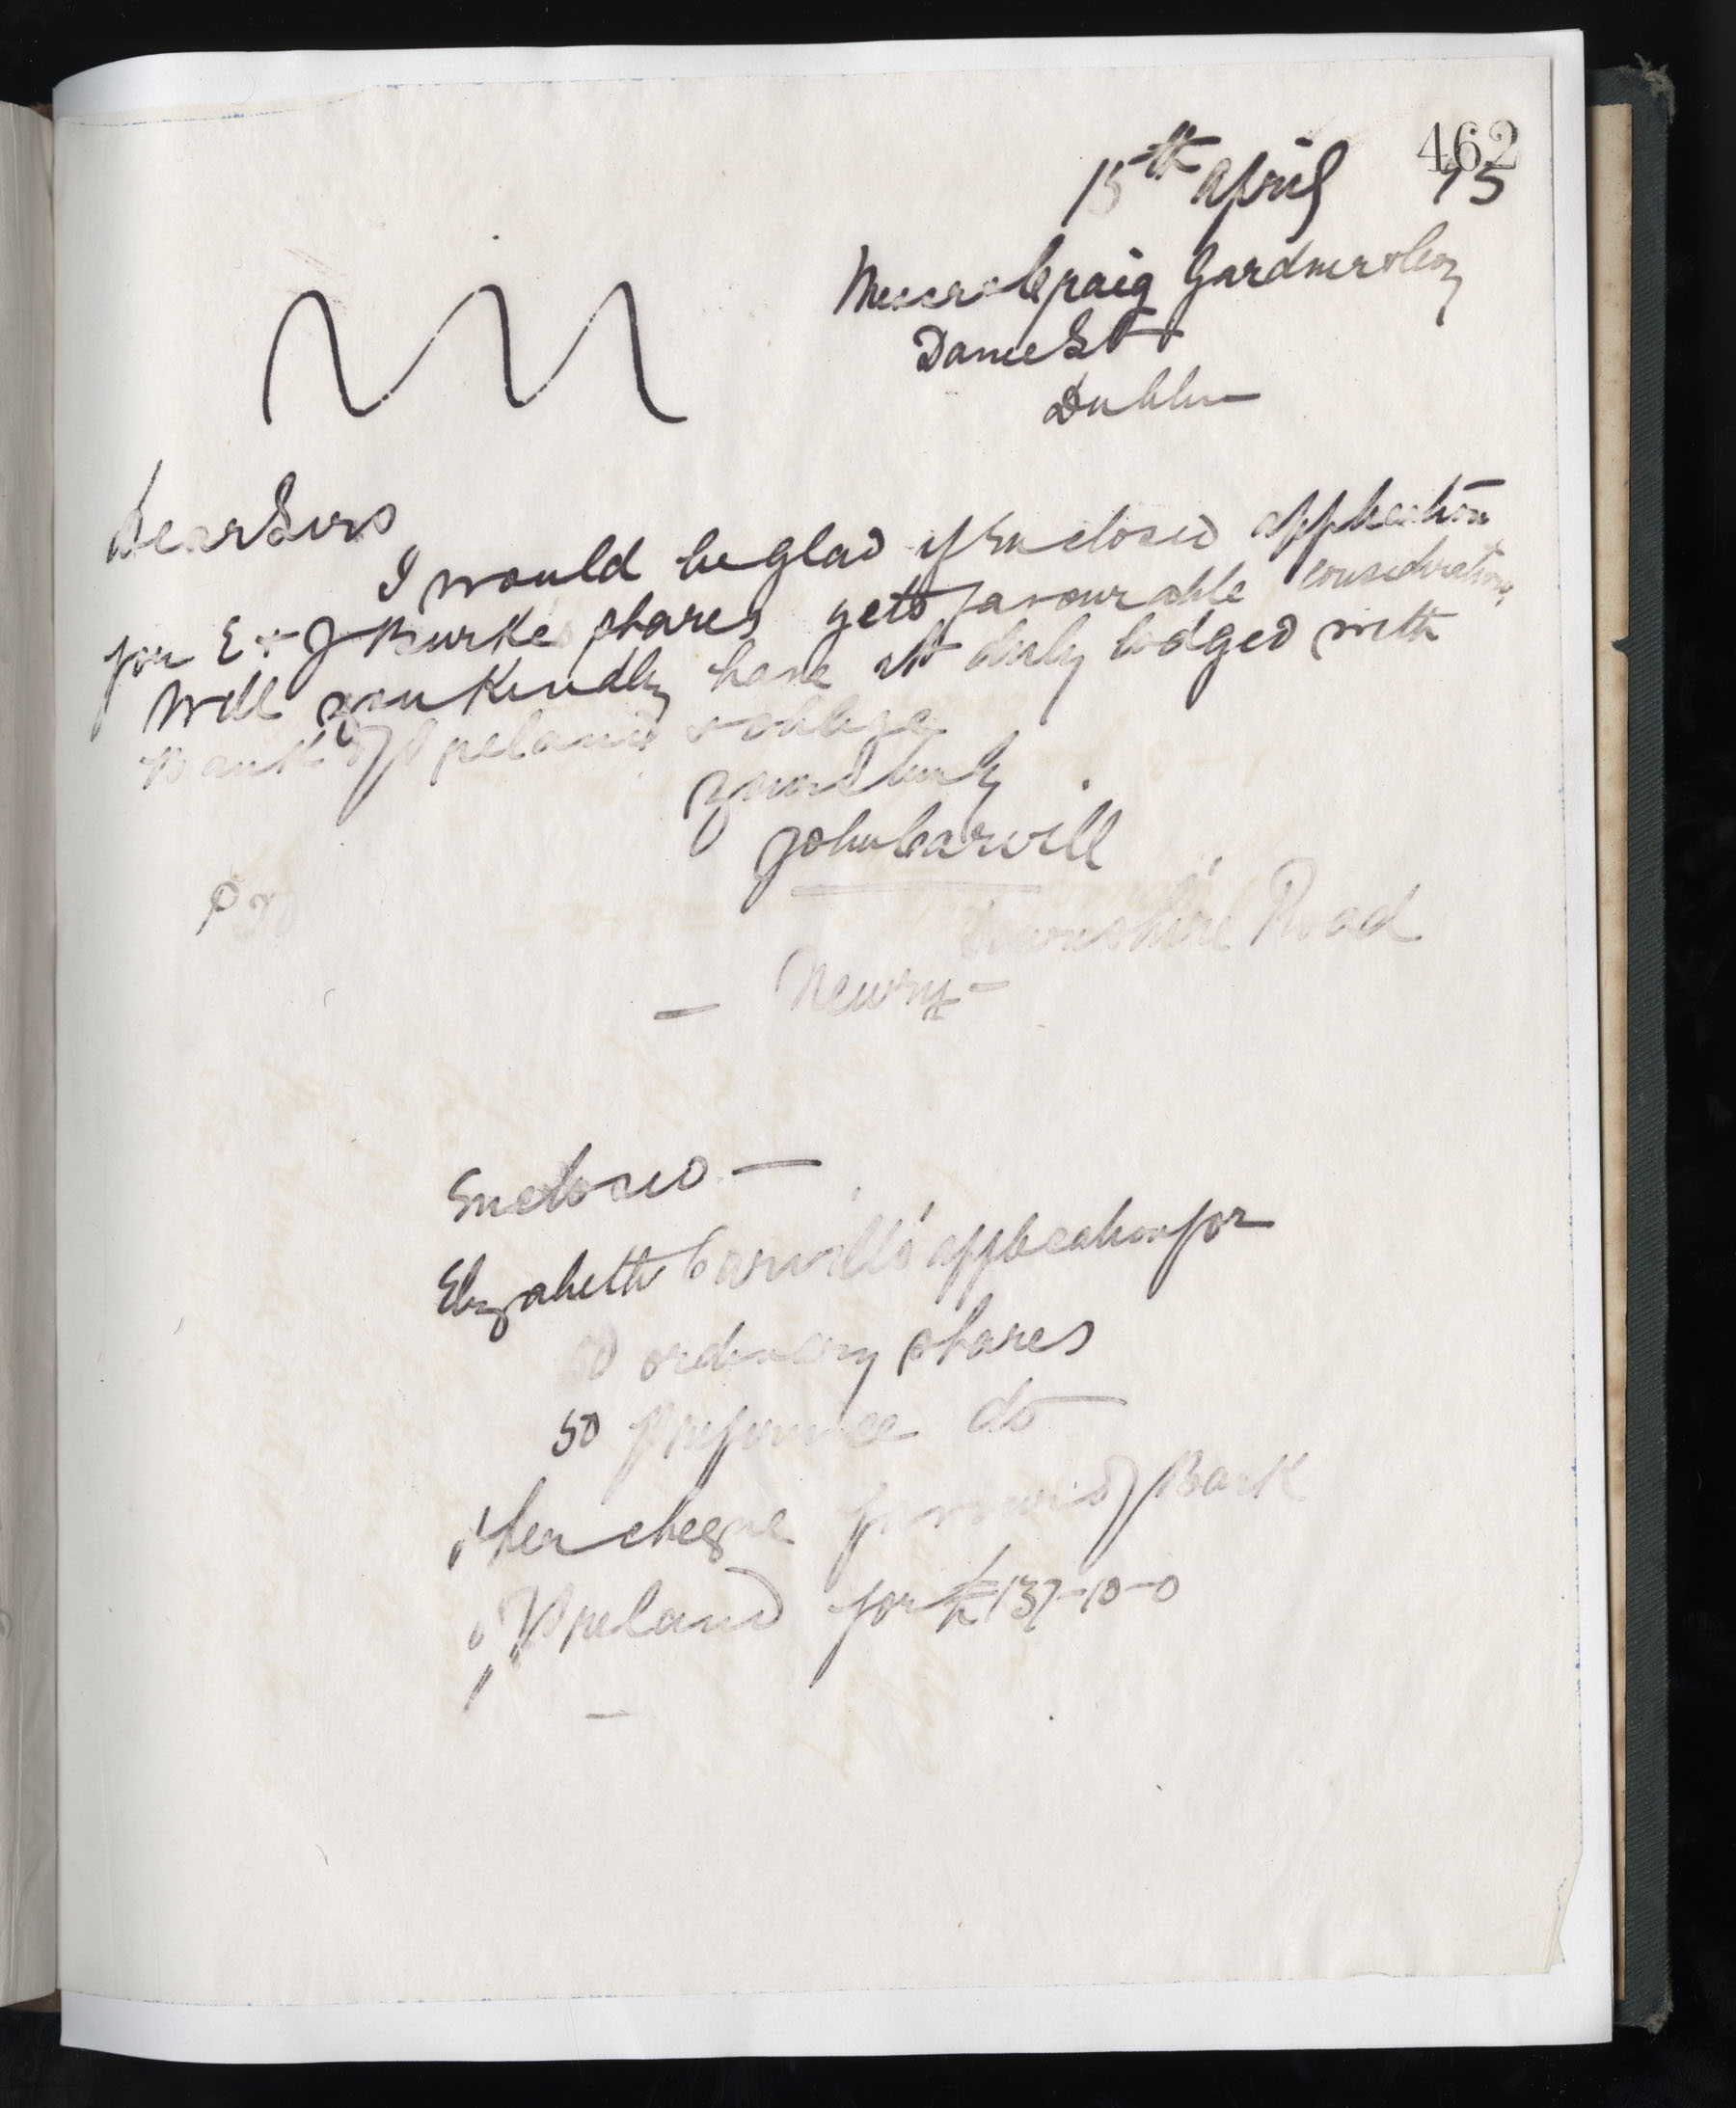 462
15th April 95
Messrs Craig Gardner & Coy
Dame Stt
Dublin
Dear Sirs
I would be glad if Enclosed application
for E & J Burkes shares gets favourable consideration,
Will you Kindly have it duly lodged with
Bank of Ireland & oblige
yours truly
John Carvill
Devonshire Road
- Newry -
Enclosed -
Elizabeth Carvill's application for
50 ordinary shares
50 preference do
" her cheque favour of Bank
" of Ireland for £137-10-0
"